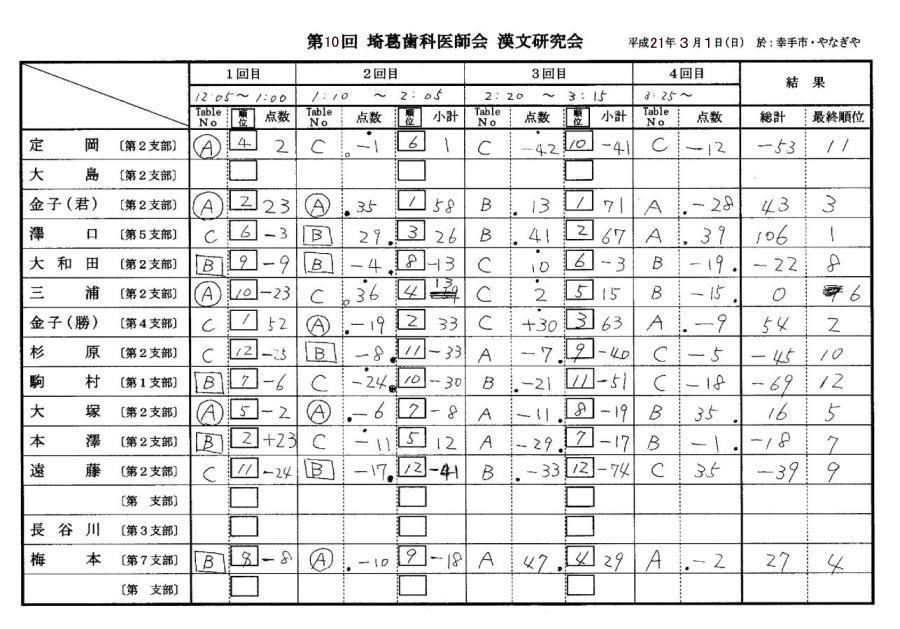 第10回 埼葛歯科医師会 漢文研究会 平成21年3月1日(日) 於:幸手市・やなぎや
1回目 2回目 3回目 4回目 結果
12:05~1:00 1:10 ~ 2:05 2:20 ~ 3:15 3:25~
Table No 順位 点数 Table No 点数 順位 小計 Table No 点数 順位 小計 Table No 点数 総計 最終順位
定岡 〔第2支部〕 A 4 2 C -1 6 1 C -42 10 -41 C -12 -53 11
大島 〔第2支部〕
金子(君) 〔第2支部〕 A 2 23 A 35 1 58 B 13 1 71 A -28 43 3
澤口 〔第5支部〕 C 6 -3 B 29 3 26 B 41 2 67 A 39 106 1
大和田 〔第2支部〕 B 9 -9 B -4 8 -13 C 10 6 -3 B -19 -22 8
三浦 〔第2支部〕 A 10 -23 C 36 4 13 C 2 5 15 B -15 0 6
金子(勝) 〔第4支部〕 C 1 52 A -19 2 33 C +30 3 63 A -9 54 2
杉原 〔第2支部〕 C 12 -25 B -8 11 -33 A -7 9 -40 C -5 -45 10
駒村 〔第1支部〕 B 7 -6 C -24 10 -30 B -21 11 -51 C -18 -69 12
大塚 〔第2支部〕 A 5 -2 A -6 7 -8 A -11 8 -19 B 35 16 5
本澤 〔第2支部〕 B 2 +23 C -11 5 12 A -29 7 -17 B -1 -18 7
遠藤 〔第2支部〕 C 11 -24 B -17 12 -41 B -33 12 -74 C 35 -39 9
〔第 支部〕
長谷川 〔第3支部〕
梅本 〔第7支部〕 B 8 -8 A -10 9 -18 A 47 4 29 A -2 27 4
〔第 支部〕